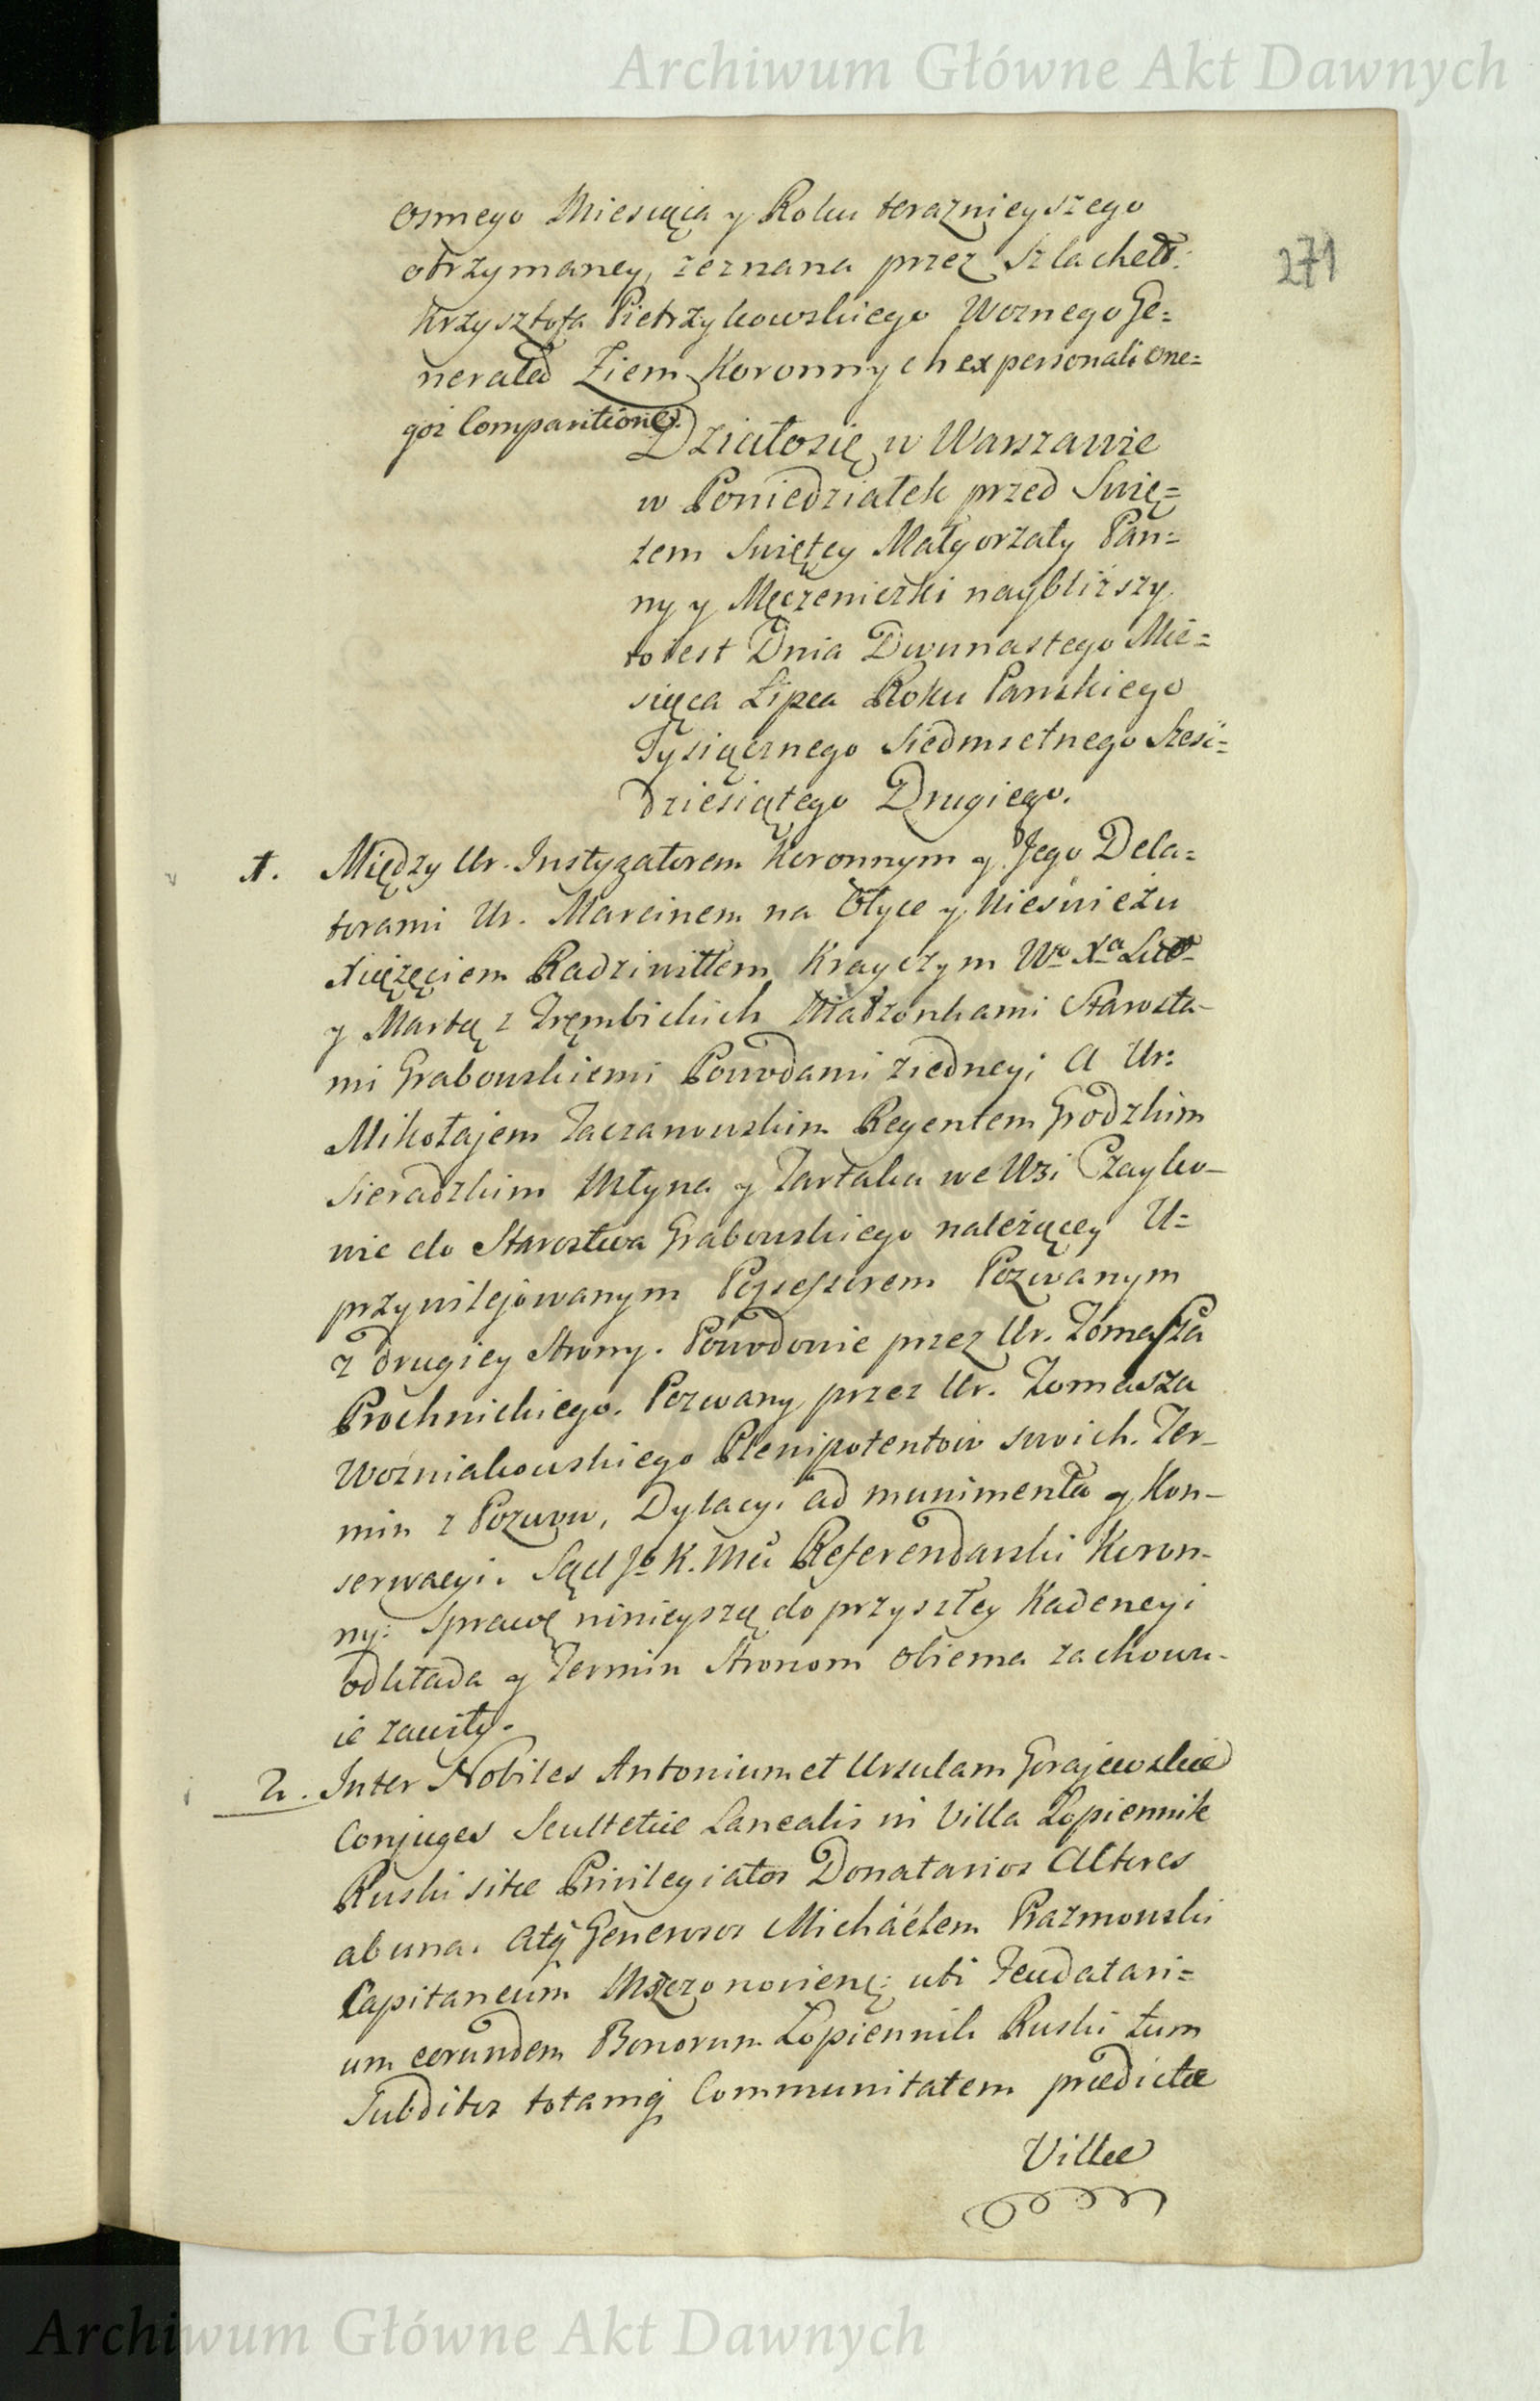 Archiwum Główne Akt Dawnych
271
osmego Miesiąca y Roku teraznieyszego
otrzymaney, zeznana przez Szlachet:
Krzysztofa Pietrzykowskiego Woznego Ge=
nerała Ziem Koronnych ex personali one=
goż Comparitione.
Działosię w Warszawie
w Poniedziałek przed Swię=
tem Swiętey Małgorzaty Pan=
ny y Męczeniczki naybliższy
to iest Dnia Dwunastego Mie=
siąca Lipca Roku Panskiego
Tysiącznego Siedmsetnego Szesć=
dziesiątego Drugiego.
1. Między Ur. Instygatorem Koronnym y Jego Dela=
torami Ur. Marcinem na Ołyce y Nieświeżu
Xiążęciem Radziwiłłem Krayczym Wo Xa Litt
y Martą z Trembickich Małżonkami Starosta-
mi Grabowskiemi Powodami ziedney; a Ur:
Mikołajem Zaczanowskim Regentem Grodzkim
Sieradzkim Młyna y Tartaka we Wsi Czayko-
wie do Starostwa Grabowskiego należącey U=
przywilejowanym Possessorem Pozwanym
z drugiey Strony. Powodowie przez Ur. Tomasza
Prochnickiego. Pozwany przez Ur. Tomasza
Woźniakowskiego Plenipotentow swoich. Ter-
min z Pozwu, Dylacyi ad munimenta y Kon-
serwacyi. Sąd Jo K. Mci Referendarski Koron-
ny: Sprawę ninieyszą do przyszłey Kadencyi
odkłada y Termin Stronom obiema zachowu-
ie zawity.
2. Inter Nobiles Antonium et Ursulam Gorajewskie
Conjuges Scultetiæ Lanealis in Villa Łopiennik
Ruski sitæ Privilegiatos Donatarios Actores
ab una. Atq Generosos Michaélem Prazmowski
Capitaneum Mszczonovienę: uti Feudatari=
um eorundem Bonorum Łopiennik Ruski tum
Subditos totamq Communitatem prædictæ
Villæ
Archiwum Główne Akt Dawnych